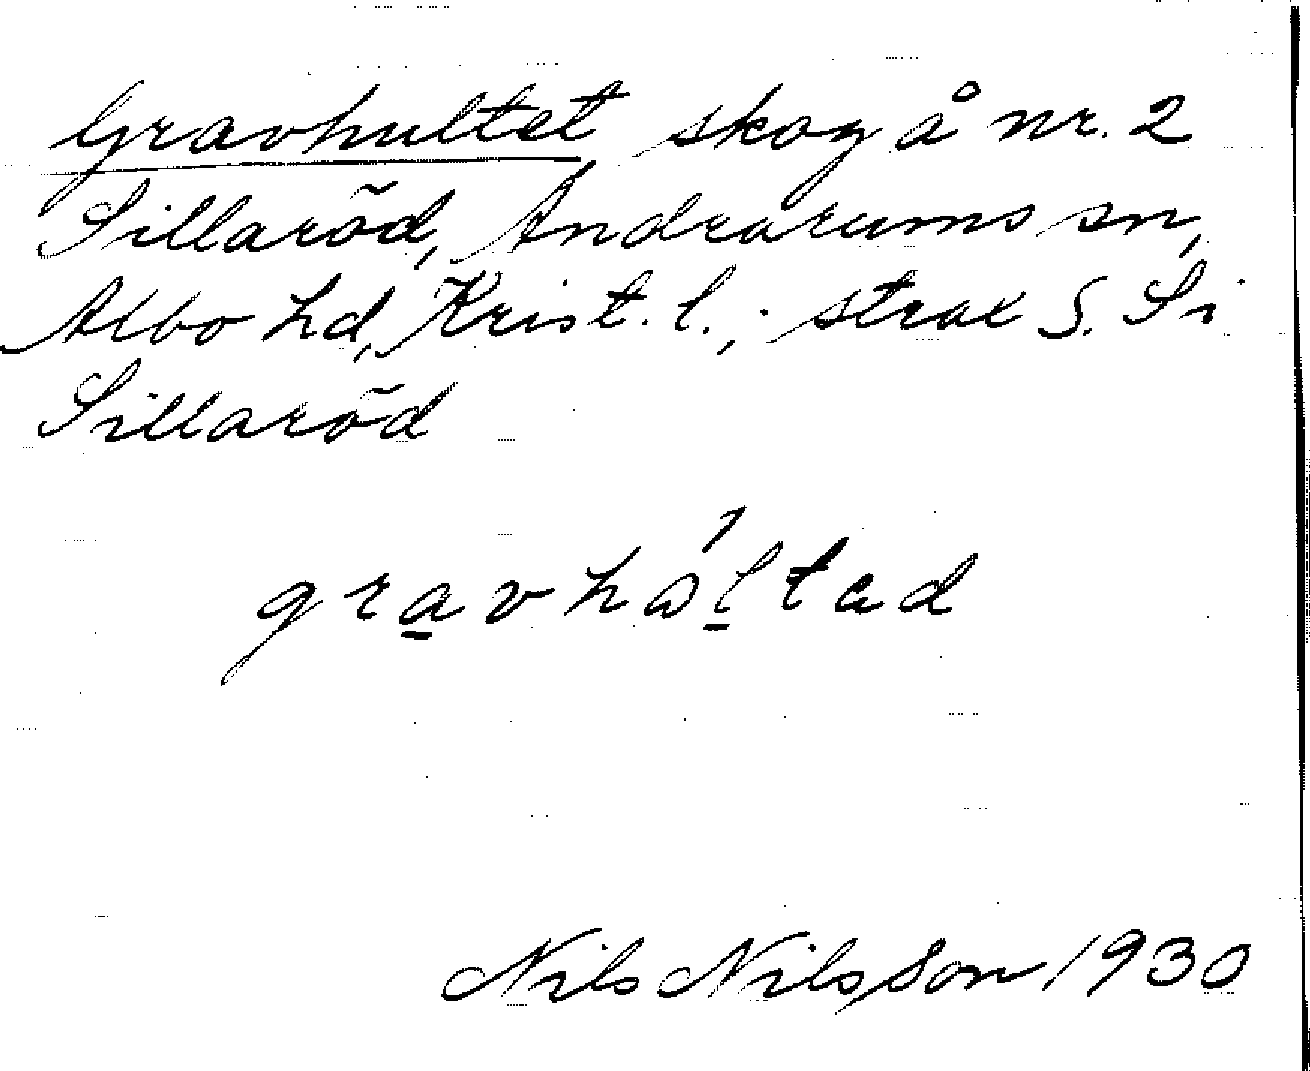 Gravhultet skog å nr. 2
Sillaröd, Andrarums sn,
Albo hd, Krist. l.; strax S. Si
Sillaröd
gravhåltad
Nils Nilsson 1930